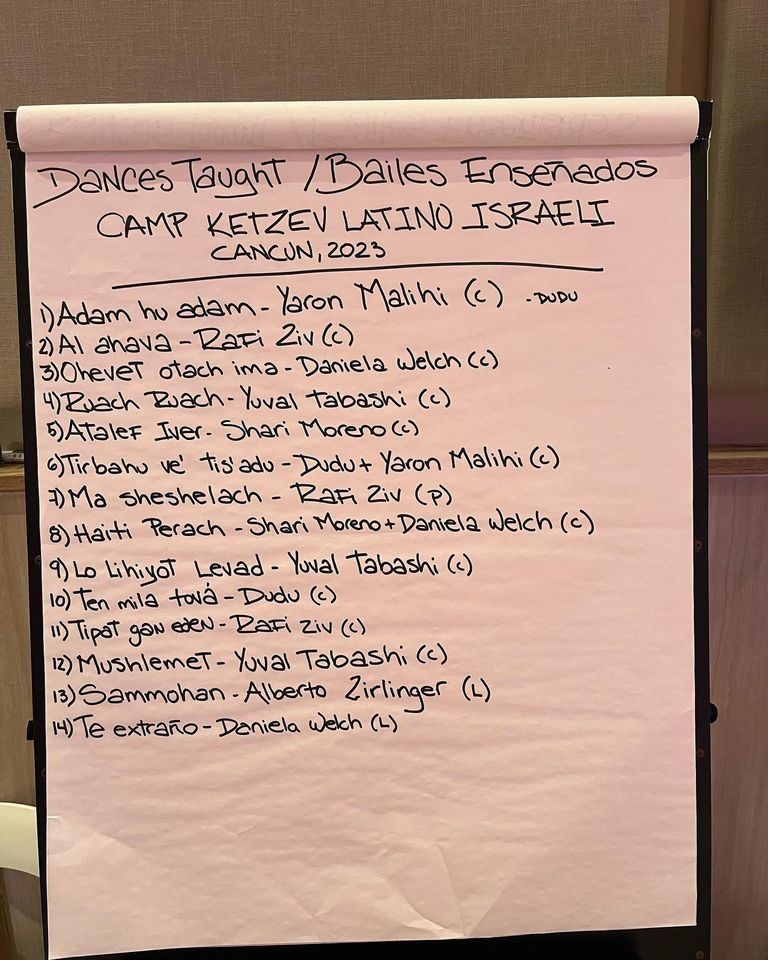 Dances Taught / Bailes Enseñados
CAMP KETZEV LATINO ISRAELI
CANCUN, 2023
1) Adam hu adam - Yaron Malihi (c) - DUDU
2) Al ahava - Rafi Ziv (c)
3) Ohevet otach ima - Daniela Welch (c)
4) Ruach Ruach - Yuval Tabashi (c)
5) Atalef Iver - Shari Moreno (c)
6) Tirbahu ve' tis'adu - Dudu + Yaron Malihi (c)
7) Ma sheshelach - Rafi Ziv (p)
8) Haiti Perach - Shari Moreno + Daniela Welch (c)
9) Lo Lihiyot Levad - Yuval Tabashi (c)
10) Ten mila tová - Dudu (c)
11) Tipat gan eden - Rafi Ziv (c)
12) Mushlemet - Yuval Tabashi (c)
13) Sammohan - Alberto Zirlinger (L)
14) Te extraño - Daniela Welch (L)